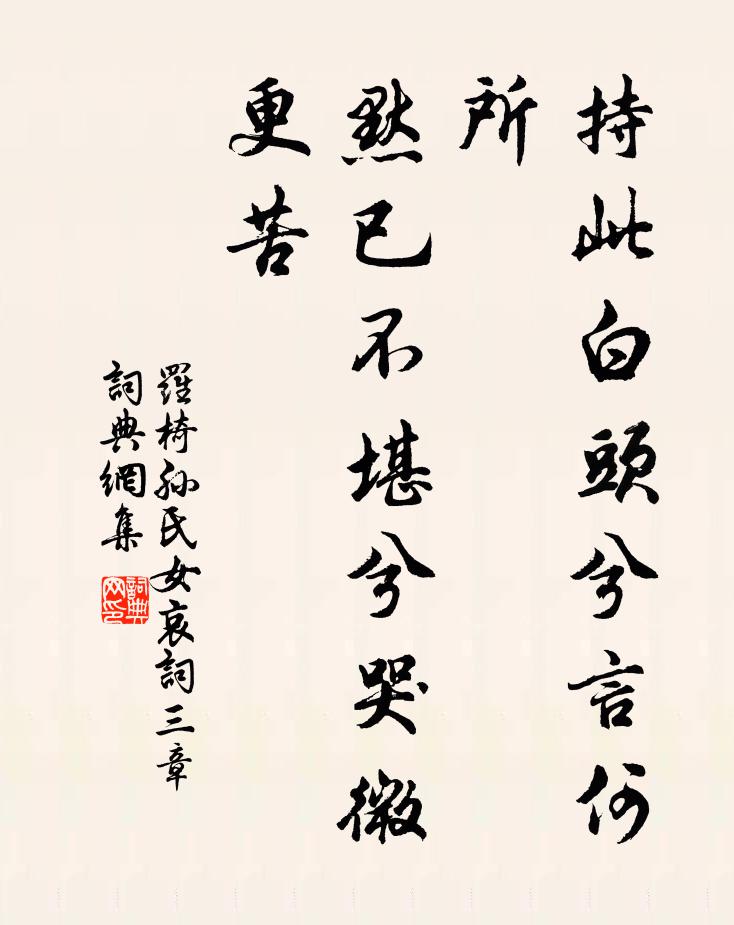 持此白頭兮言何
所
默已不堪兮哭微
更苦
羅椅孫氏女哀詞三章
詞典網集
詞典
网印